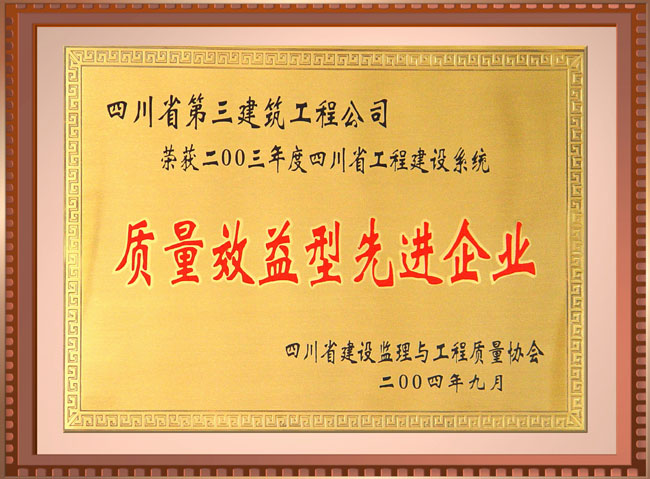 四川省第三建筑工程公司
荣获二00三年度四川省工程建设系统
质量效益型先进企业
四川省建设监理与工程质量协会
二00四年九月